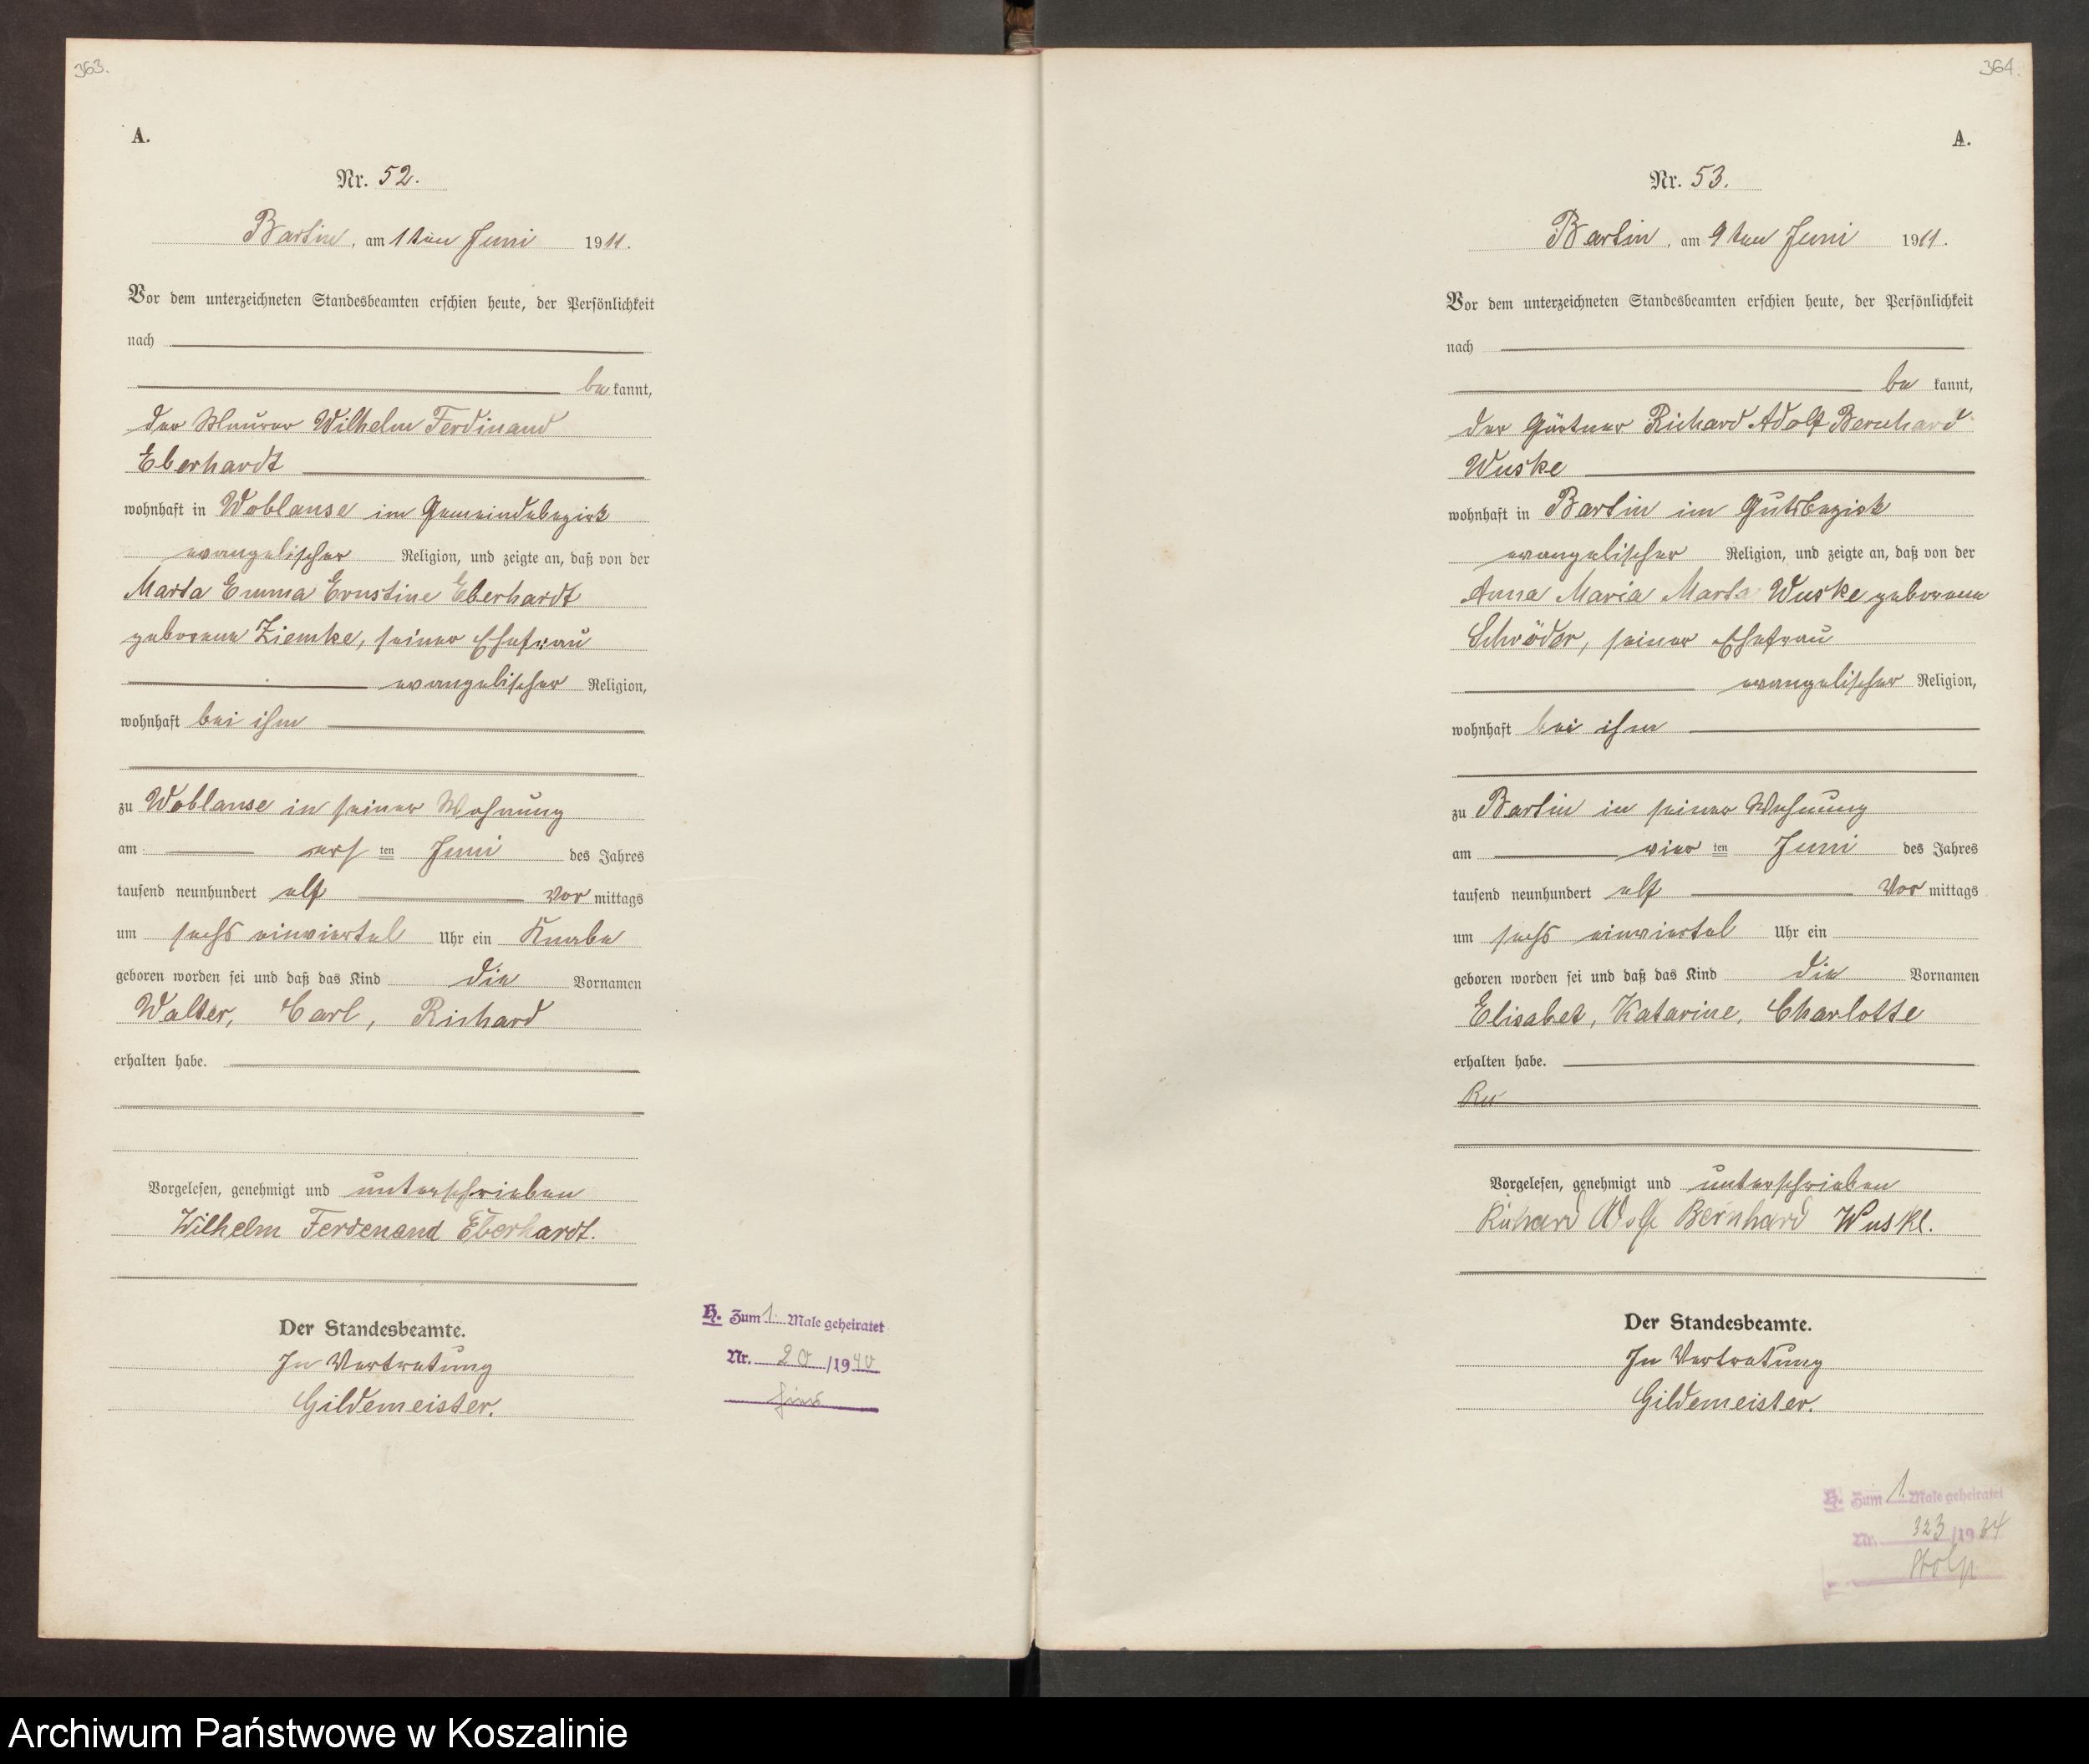 363.
A.
Nr. 52.
Bartin, am 1ten Juni 1911.
Vor dem unterzeichneten Standesbeamten erschien heute, der Persönlichkeit
nach
be kannt,
der Maurer Wilhelm Ferdinand
Eberhardt
wohnhaft in Woblanse im Gemeindebezirk
evangelischer Religion, und zeigte an, daß von der
Marta Emma Ernstine Eberhardt
geborene Ziemke, seiner Ehefrau
evangelischer Religion,
wohnhaft bei ihm
zu Woblanse in seiner Wohnung
am ers ten Juni des Jahres
tausend neunhundert elf Vor mittags
um sechs einviertel Uhr ein Knabe
geboren worden sei und daß das Kind die Vornamen
Walter, Carl, Richard
erhalten habe.
Vorgelesen, genehmigt und unterschrieben
Wilhelm Ferdenand Eberhardt.
Der Standesbeamte.
In Vertretung
Gildemeister.
H. Zum 1. Male geheiratet
Nr. 20 /1940
364.
A.
Nr. 53.
Bartin, am 9ten Juni 1911.
Vor dem unterzeichneten Standesbeamten erschien heute, der Persönlichkeit
nach
be kannt,
der Gärtner Richard Adolf Bernhard
Wuske
wohnhaft in Bartin im Gutsbezirk
evangelischer Religion, und zeigte an, daß von der
Anna Maria Marta Wuske geborene
Schröder, seiner Ehefrau
evangelischer Religion,
wohnhaft bei ihm
zu Bartin in seiner Wohnung
am vier ten Juni des Jahres
tausend neunhundert elf Vor mittags
um sechs einviertel Uhr ein
geboren worden sei und daß das Kind die Vornamen
Elisabet, Katarine, Charlotte
erhalten habe.
Vorgelesen, genehmigt und unterschrieben
Richard Adolf Bernhard Wuske.
Der Standesbeamte.
In Vertretung
Gildemeister.
H. Zum 1. Male geheiratet
Nr. 323 /1934
Stolp
Archiwum Państwowe w Koszalinie